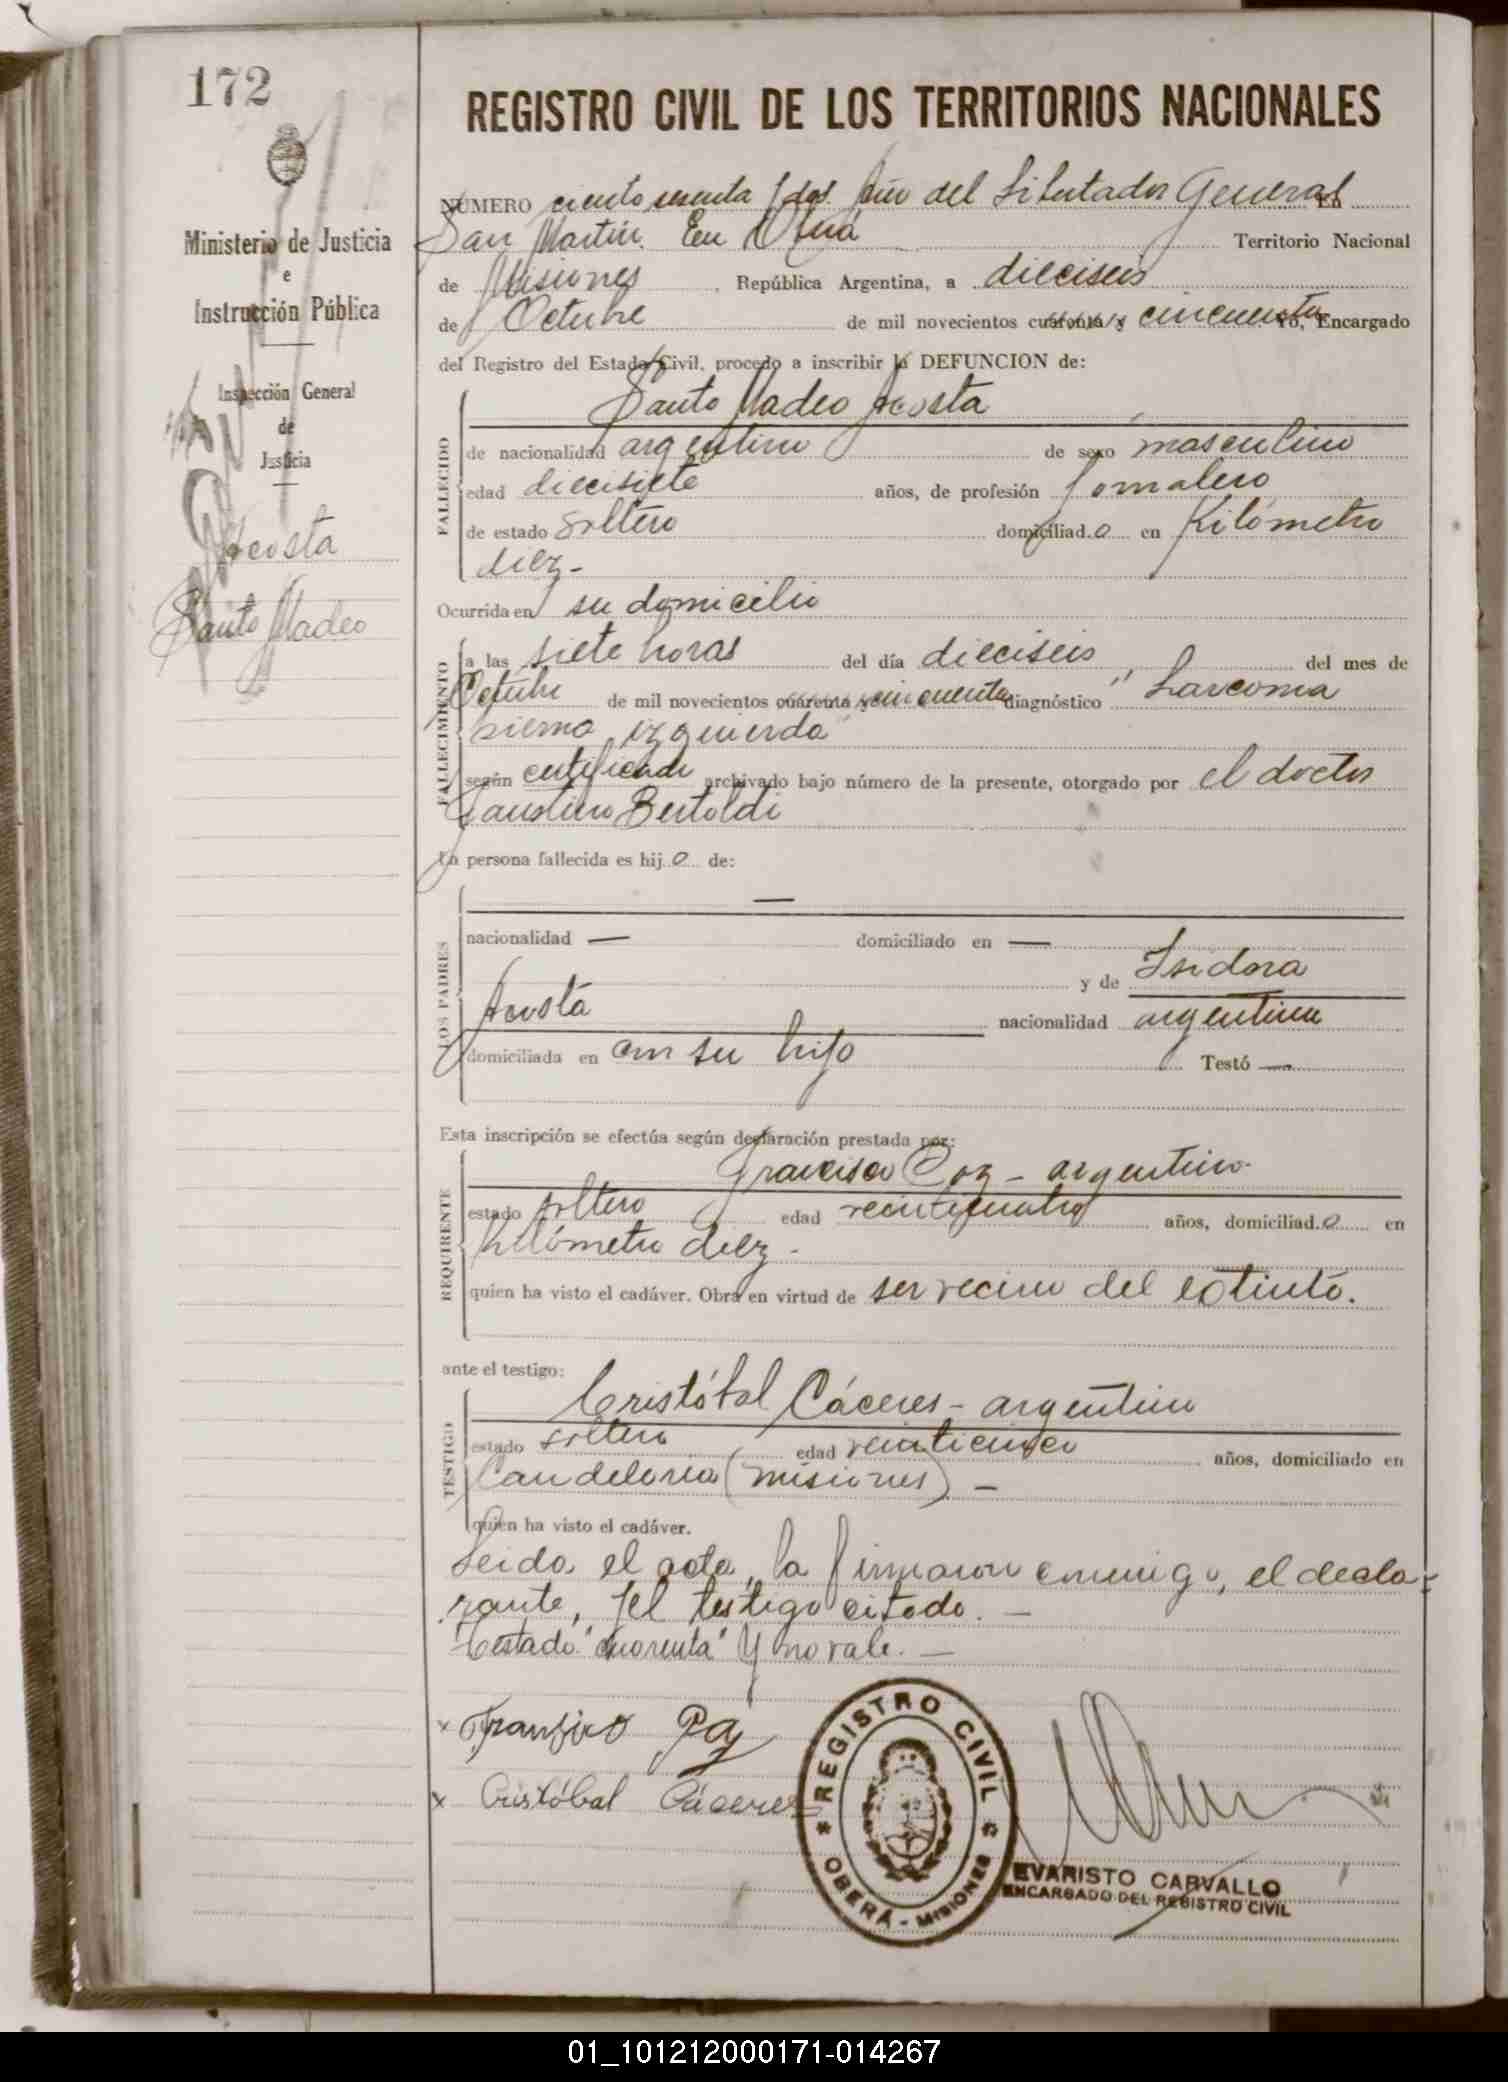 172
REGISTRO CIVIL DE LOS TERRITORIOS NACIONALES
Ministerio de Justicia
e
Instrucción Pública
Inspección General
de
Justicia
Acosta
Santo Madeo
NÚMERO ciento sesenta y dos. Año del Libertador General En
San Martín. En Oberá Territorio Nacional
de Misiones, República Argentina, a dieciseis
de Octubre de mil novecientos cuarenta y cincuenta Yo, Encargado
del Registro del Estado Civil, procedo a inscribir la DEFUNCION de:
Santo Madeo Acosta
FALLECIDO
de nacionalidad argentino de sexo masculino
edad diecisiete años, de profesión Jornalero
de estado soltero domiciliad.o en Kilómetro
diez.-
Ocurrida en su domicilio
FALLECIMIENTO
a las siete horas del día dieciseis del mes de
Octubre de mil novecientos cuarenta y cincuenta diagnóstico "Sarcoma
pierna izquierda"
según certificado archivado bajo número de la presente, otorgado por el doctor
Faustino Bertoldi
La persona fallecida es hij.o de:
—
LOS PADRES
nacionalidad — domiciliado en —
y de Isidora
Acosta nacionalidad argentina
domiciliada en con su hijo Testó —
Esta inscripción se efectúa según declaración prestada por:
argentino.
REQUIRENTE
estado soltero edad veinticuatro años, domiciliad.o en
Kilómetro diez -
quien ha visto el cadáver. Obra en virtud de ser vecino del extinto.
ante el testigo:
Cristóbal Cáceres - argentino
TESTIGO
estado soltero edad veinticinco años, domiciliado en
Candelaria (Misiones) -
quien ha visto el cadáver.
Leida el acta, la firmaron conmigo, el decla-
rante, y el testigo citado. -
Testado "cuarenta" y no vale. -
x Paz
x Cristóbal Cáceres
REGISTRO CIVIL
OBERÁ - MISIONES
EVARISTO CARVALLO
ENCARGADO DEL REGISTRO CIVIL
01_101212000171-014267